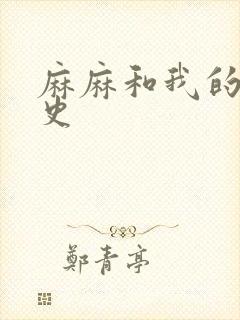 麻麻和我的
史
鄭青亭